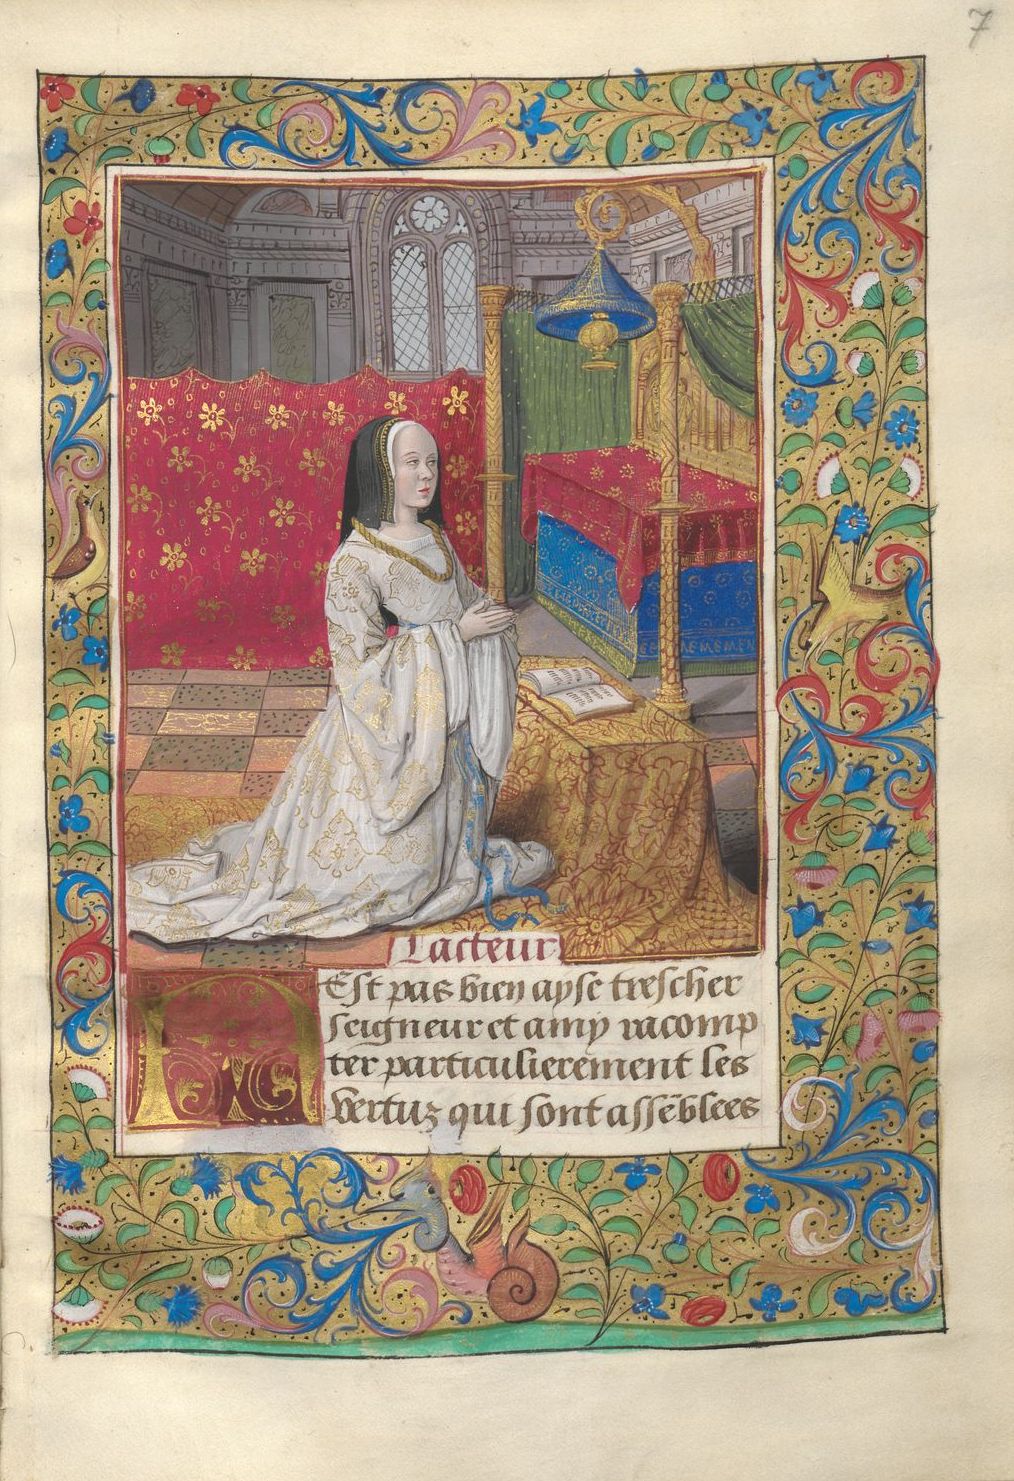 7
Lacteur
NEst pas bien ayse trescher
seigneur et amy racomp
ter particulierement les
vertuz qui sont assēblees